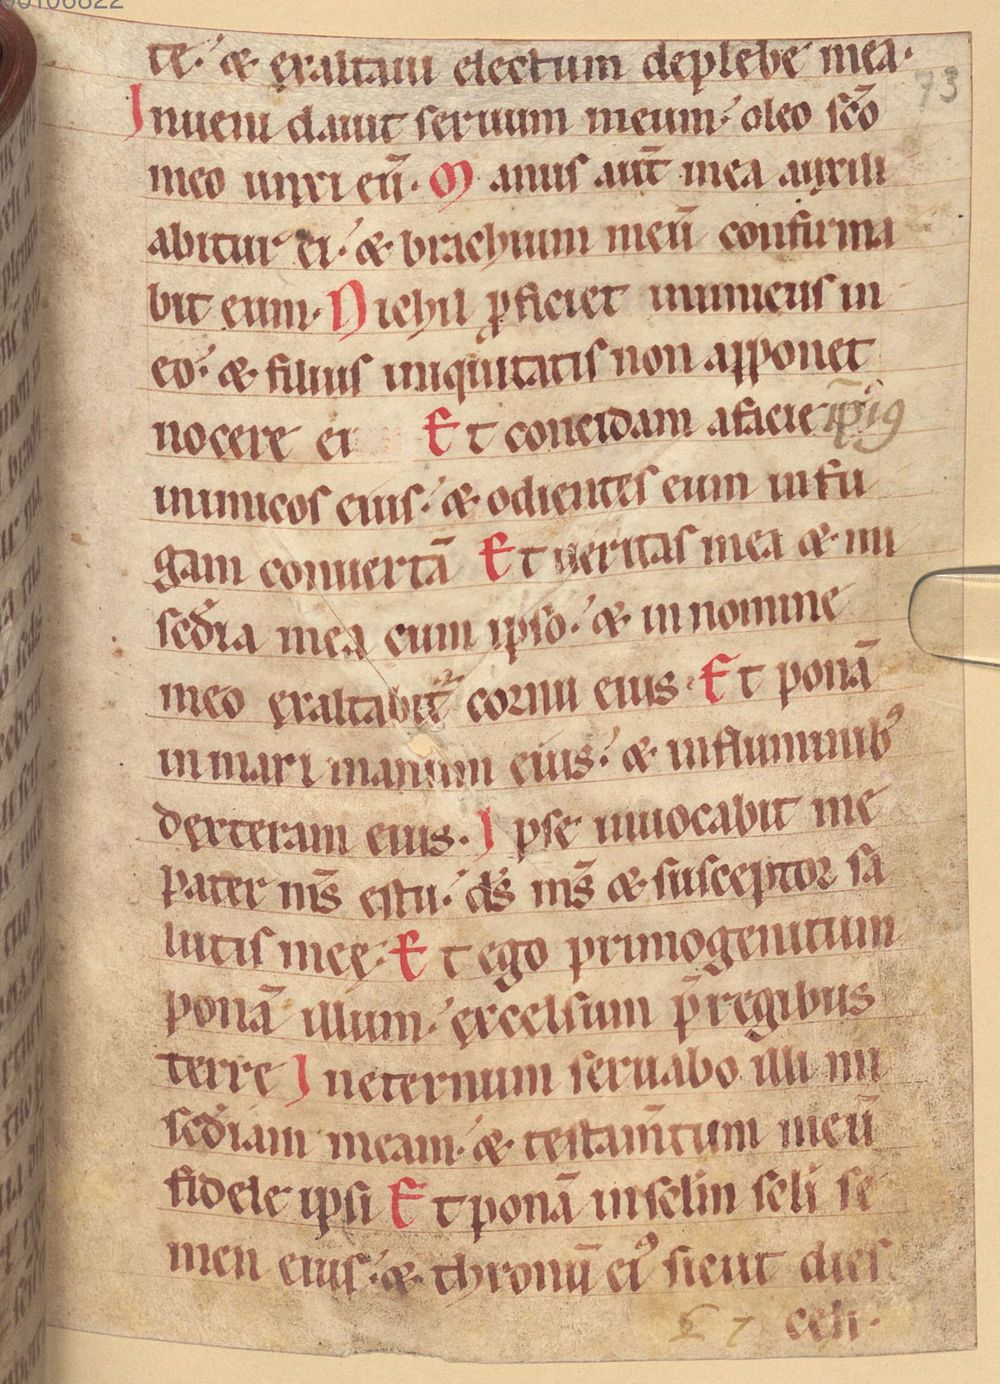 00106822
te· & exaltaui electum deplebe mea·
73
Inueni dauit seruum meum· oleo sc̄o
meo unxi eū· Manus aut̄ mea auxili
abitur ei· & brachium meū confirma
bit eum· Nichil ꝓficiet inimicus in
eo· & filius iniquitatis non apponet
nocere ei Et concidam afacie ip̄iꝰ
inimicos eius· & odientes eum infu
gam conuertā Et ueritas mea & mi
sed̄ia mea cum ipso· & innomine
meo exaltabit᷑ cornu eius· Et ponā
inmari manum eius· & influminibꝰ
dexteram eius· Ipse inuocabit me
pater m̄s estu· d̄s m̄s & susceptor sa
lutis meę· Et ego primogenitum
ponā illum· excelsum p̄regibus
terre Ineternum seruabo illi mi
sed̄iam meam· & testam̄tum meū
fidele ipsi Et ponā inselin seli se
men eius· & thronū eiꝰ sicut dies
celi·